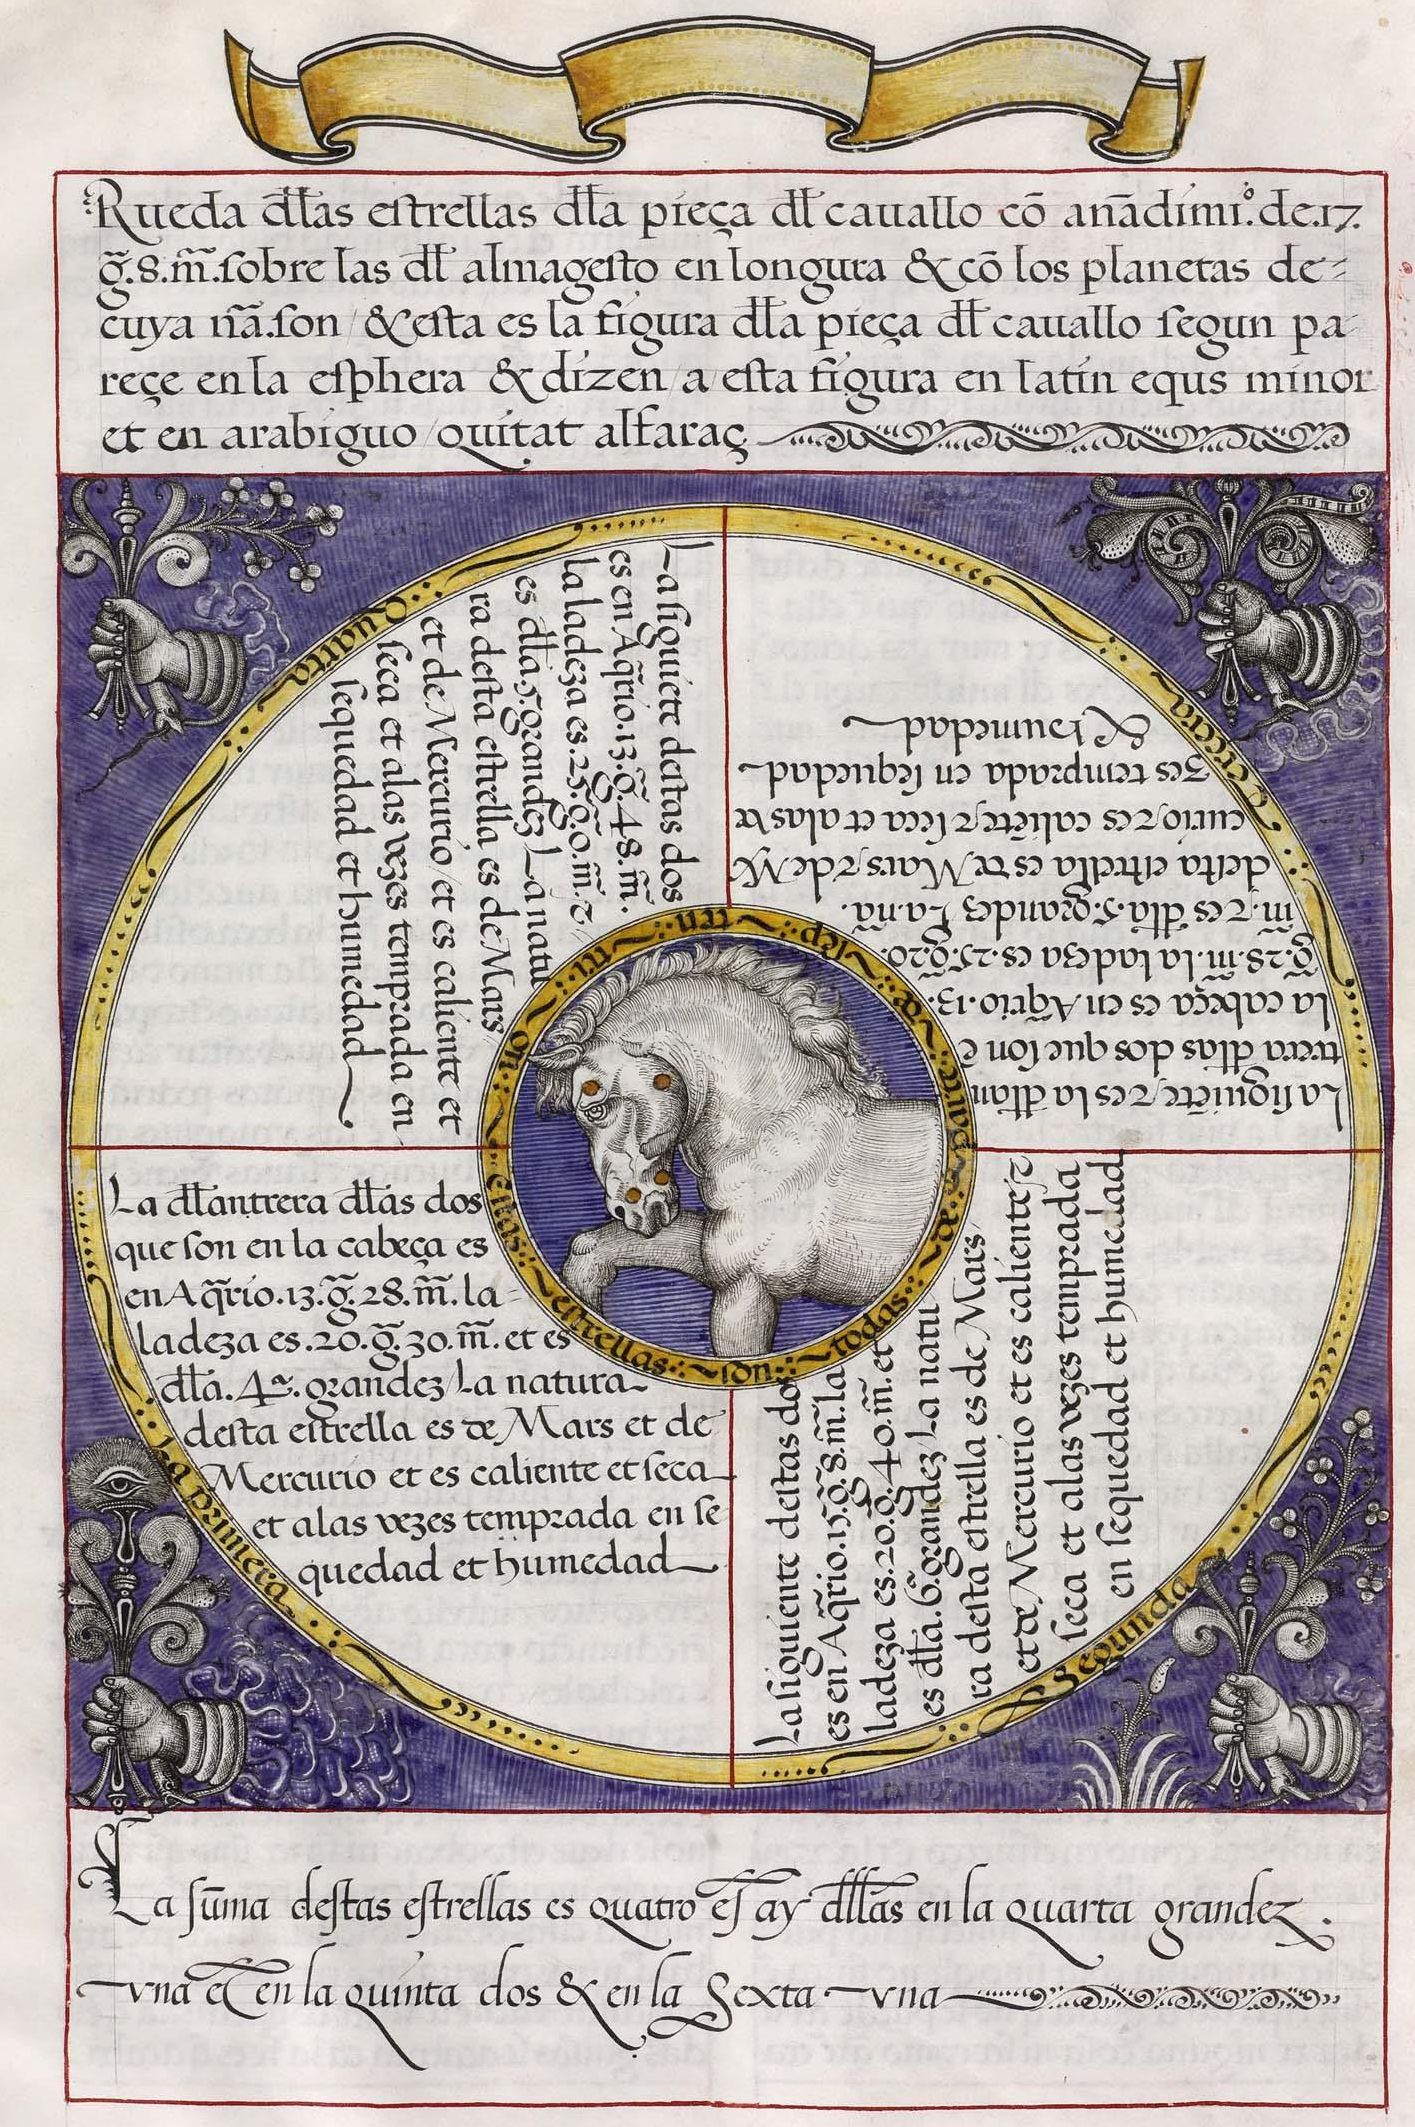 Rueda dłłas estrellas dłła pieça dł cauallo cõ anãdimi.º de.17.
g̃.8.m̃.sobre las dł almagesto en longura & cõ los planetas de-
cuya nã.son / & esta es la figura dłła pieça dł cauallo segun pa-
reçe en la esphera & dizen / a / esta figura en latin equs minor
et en arabiguo / quitat alfaraç
La primera
La dłłantrera dłłas dos
que son en la cabeça es
en Aq̃rio.13.g̃.28.m̃.la-
ladeza es.20.g̃.30.m̃.et es
dłła.4ª.grandez / La natura
desta estrella es de Mars et de
Mercurio et es caliente et seca
et a las vezes temprada en se
quedad et humedad
Segunda
La siguiente destas dos
es en Aq̃rio.15.g̃.8.m̃.la
ladeza es.20.g̃.40.m̃.et
es dłła.6ª.grandez / La natu
ra desta estrella es de Mars
et de Mercurio et es caliente /
seca et a las vezes temprada
en sequedad et humedad
Tercera
La siguiẽte / τ es la dłłan
trera dłłas dos que son e
la cabeça es en Aq̃rio.13.
g̃.28.m̃.la ladeza es.25.g̃.20.
m̃.τ es dłła.5.grandez La nã.
desta estrella es de Mars τ de M
curio / τ es caliẽte / τ seca et a las ve
zes temprada en sequedad
& humedad
Quarta
La siguiẽte destas dos
es en Aq̃rio.13.g̃.48.m̃.
la ladeza es.25.g̃.0.m̃.τ /
es dłła.5.grandez La natu
ra desta estrella es de Mars
et de Mercurio / et es caliente et
seca et a las vezes temprada en
sequedad et humedad
estrellas. son. todas.
La sũma destas estrellas es quatro et ay dłłas en la quarta grandez.
vna et en la quinta dos & en la Sexta vna